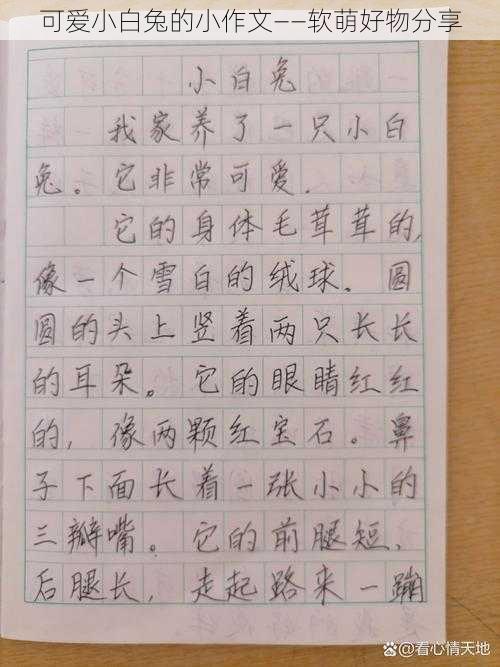 可爱小白兔的小作文——软萌好物分享
小白兔
我家养了一只小白
兔。它非常可爱.
它的身体毛茸茸的,
像一个雪白的绒球.圆
圆的头上竖着两只长长
的耳朵。它的眼睛红红
的,像两颗红宝石。鼻
子下面长着一张小小的
三瓣嘴。它的前腿短,
后腿长,走起路来一蹦
@看心情天地